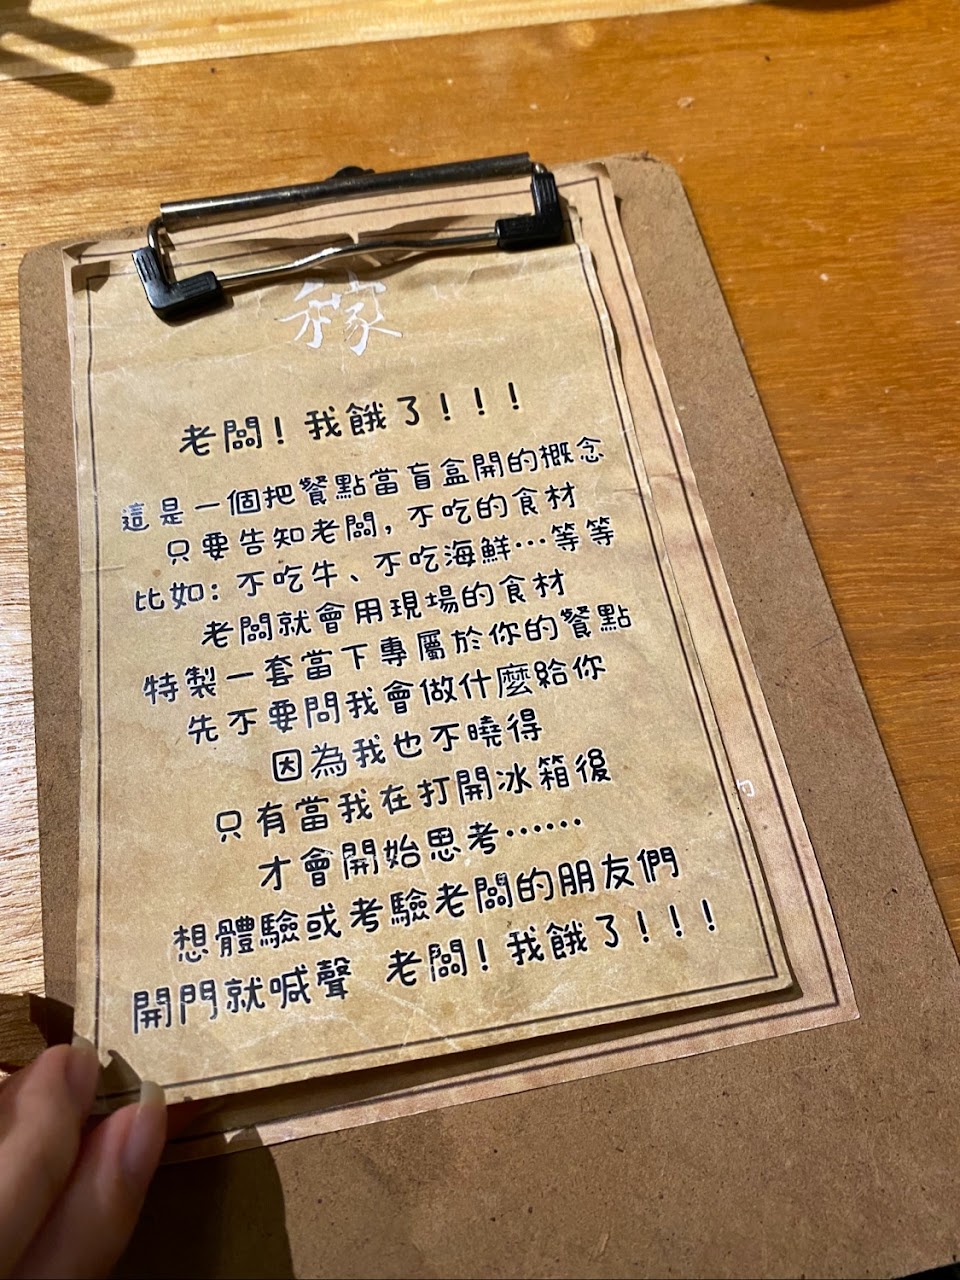 稼
老闆！我餓了！！！
這是一個把餐點當盲盒開的概念
只要告知老闆，不吃的食材
比如：不吃牛、不吃海鮮…等等
老闆就會用現場的食材
特製一套當下專屬於你的餐點
先不要問我會做什麼給你
因為我也不曉得
只有當我在打開冰箱後
才會開始思考……
想體驗或考驗老闆的朋友們
開門就喊聲 老闆！我餓了！！！